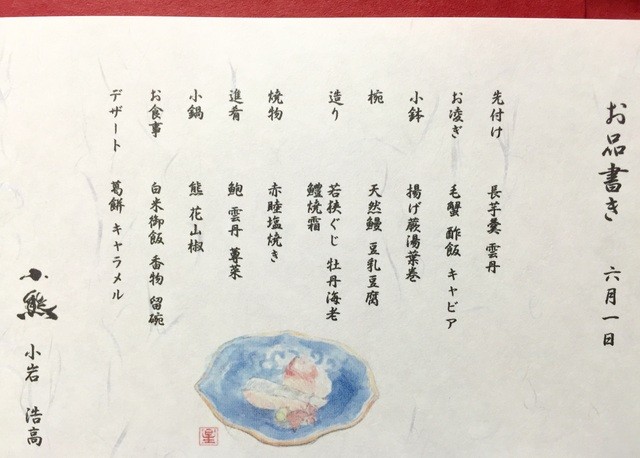 お品書き 六月一日
先付け 長芋羹 雲丹
お凌ぎ 毛蟹 酢飯 キャビア
小鉢 揚げ蕨湯葉巻
椀 天然鰻 豆乳豆腐
造り 若狭ぐじ 牡丹海老
鱧焼霜
焼物 赤睦塩焼き
進肴 鮑 雲丹 蓴菜
小鍋 熊 花山椒
お食事 白米御飯 香物 留碗
デザート 葛餅 キャラメル
小熊 小岩 浩高